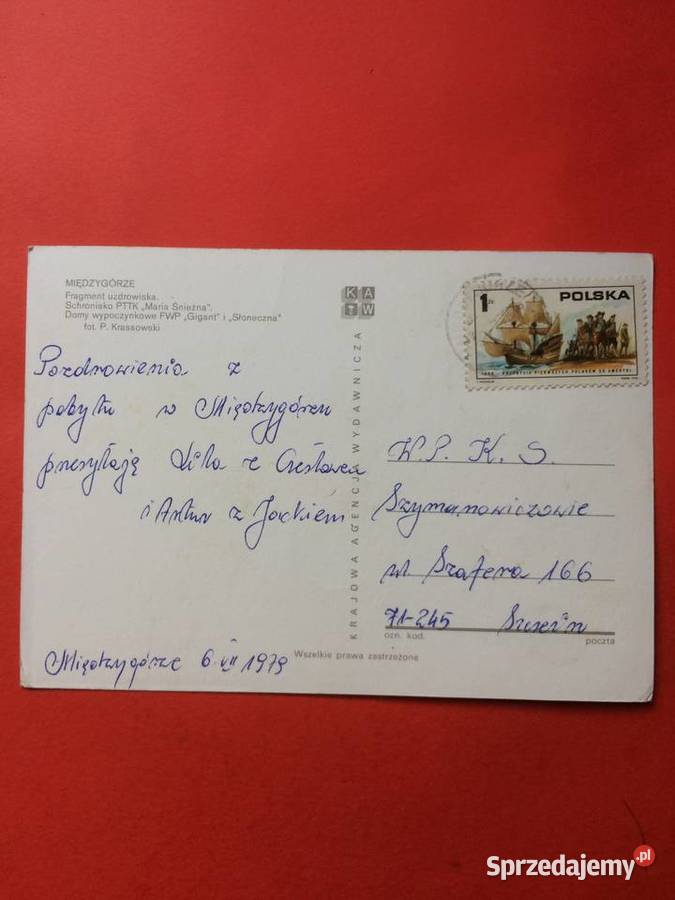 MIĘDZYGÓRZE
Fragment uzdrowiska.
Schronisko PTTK „Maria Śnieżna”.
Domy wypoczynkowe FWP „Gigant” i „Słoneczna”
fot. P. Krassowski
KA
TW
KRAJOWA AGENCJA WYDAWNICZA
1 zł
POLSKA
PRZYBYCIE PIERWSZYCH POLAKÓW DO AMERYKI
Pozdrowienia z
pobytu w Międzygórzu
przesyłają Lila ze Czesławem
i Artur z Jackiem
Międzygórze 6 VII 1979
W.P. K. S.
Szymanowiczowie
ul. Szafera 166
71-245 Szczecin
ozn. kod.
poczta
Wszelkie prawa zastrzeżone
Sprzedajemy.pl